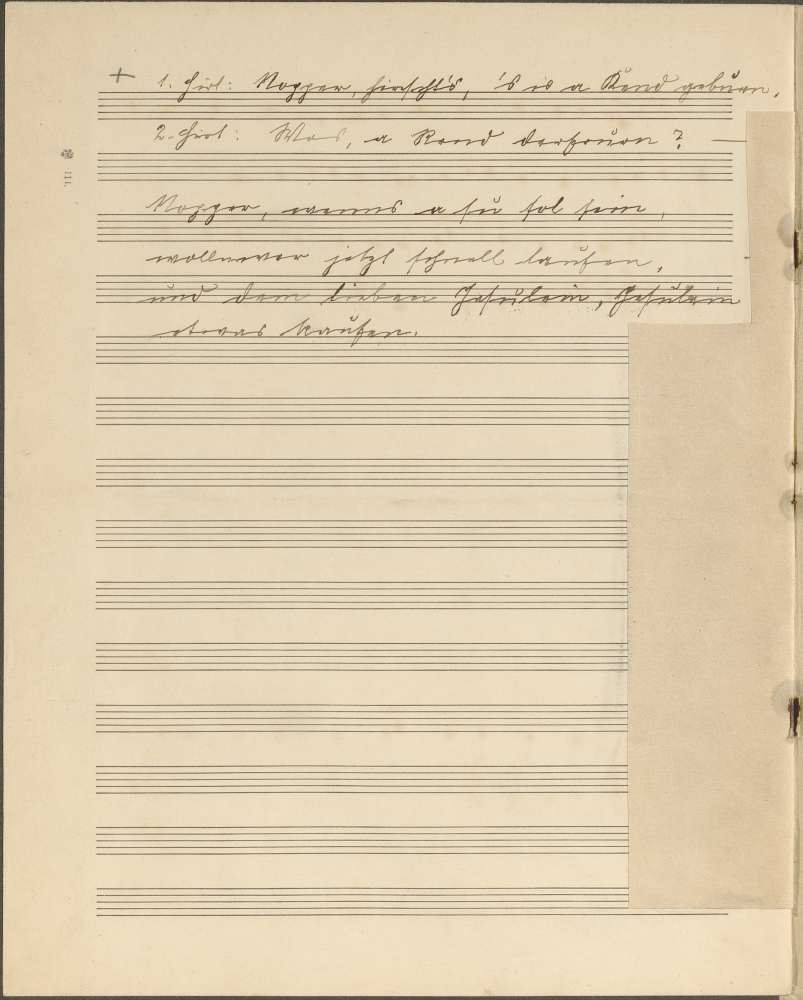 + 1. Hirt: Nopper, hirscht's, 's is a Kend geburn,
2. Hirt: Wos, a Rend derfruern? —
Nopper, wenns a su sol sein,
wollnwer jetzt schnell laufen,
und dem lieben Jesulein, Jesulein
etwas kaufen.
III.